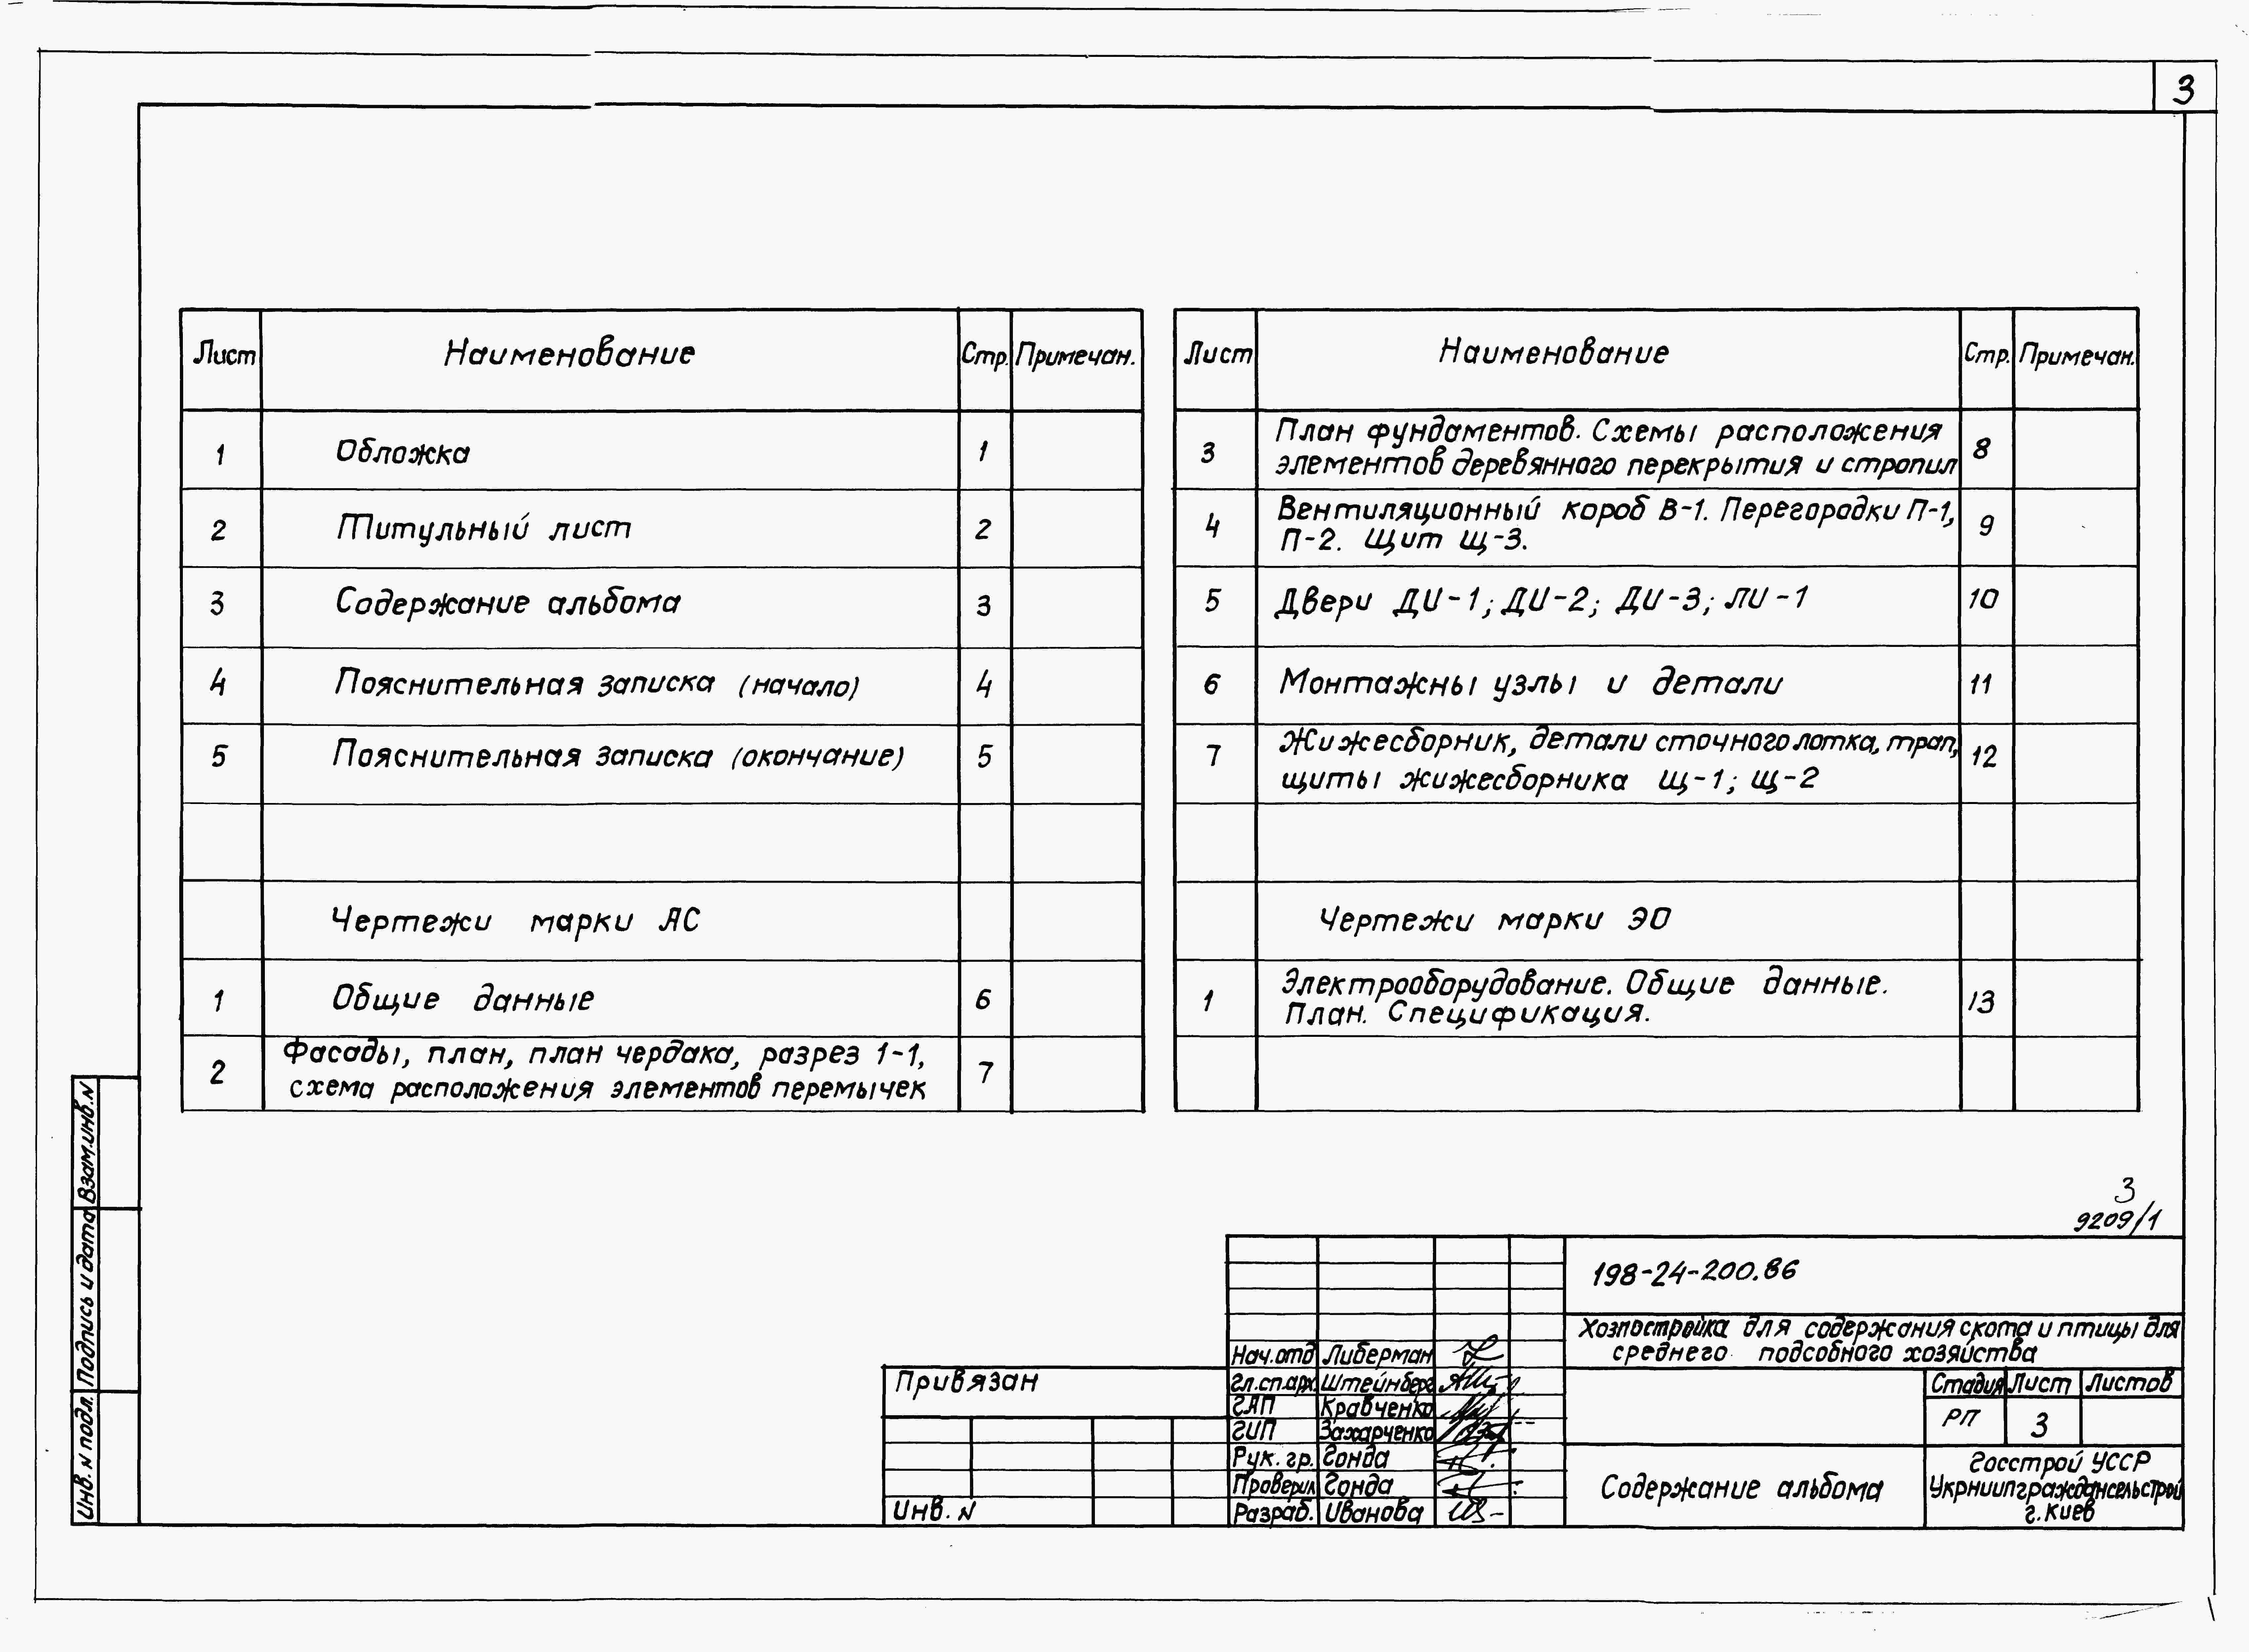 3
Лист Наименование Стр. Примечан.
1 Обложка 1
2 Титульный лист 2
3 Содержание альбома 3
4 Пояснительная записка (начало) 4
5 Пояснительная записка (окончание) 5
Чертежи марки АС
1 Общие данные 6
2 Фасады, план, план чердака, разрез 1-1, 7
схема расположения элементов перемычек
Лист Наименование Стр. Примечан.
3 План фундаментов. Схемы расположения 8
элементов деревянного перекрытия и стропил
4 Вентиляционный короб В-1. Перегородки П-1, 9
П-2. Щит Щ-3.
5 Двери ДИ-1; ДИ-2; ДИ-3; ЛИ-1 10
6 Монтажны узлы и детали 11
7 Жижесборник, детали сточного лотка, трап, 12
щиты жижесборника Щ-1; Щ-2
Чертежи марки ЭО
1 Электрооборудование. Общие данные. 13
План. Спецификация.
3
9209/1
198-24-200.86
Хозпостройка для содержания скота и птицы для
среднего подсобного хозяйства
Нач.отд Либерман
Гл.сп.арх. Штейнберг
ГАП Кравченко
ГИП Захарченко
Рук. гр. Гонда
Проверил Гонда
Разраб. Иванова
Стадия Лист Листов
РП 3
Содержание альбома
Госстрой УССР
Укрниипграждансельстрой
г. Киев
Привязан
Инв. N
Взам.инв.N
Подпись и дата
Инв. N подл.